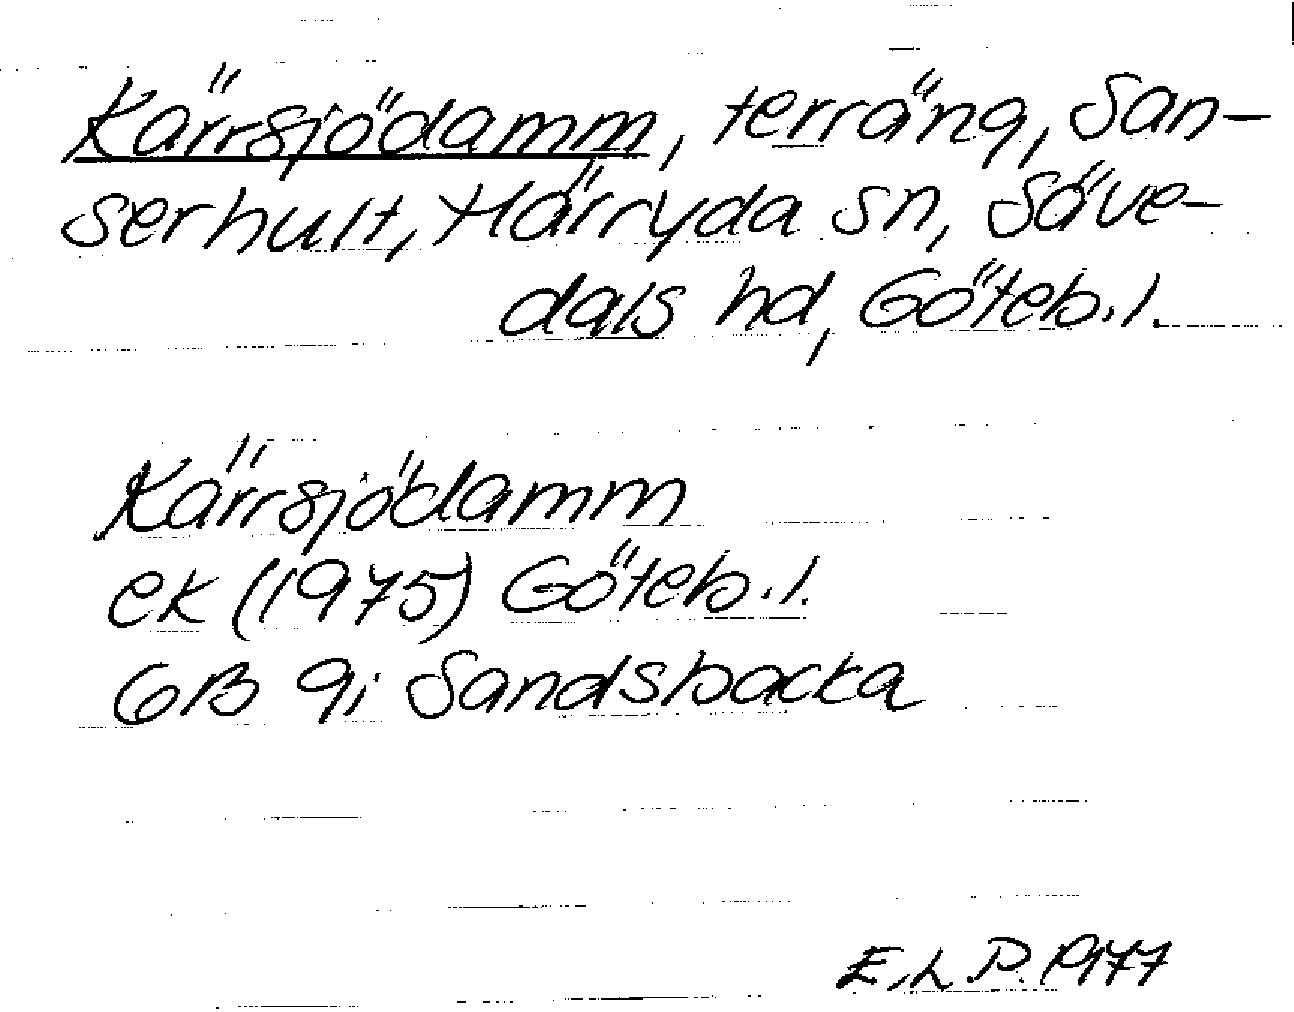 Kärrsjödamm, terräng, San-
serhult, Härryda sn, Säve-
dals hd, Göteb.l.
Kärrsjödamm
ek (1975) Göteb.l.
6B 9i Sandsbacka
E.L.P. 1977